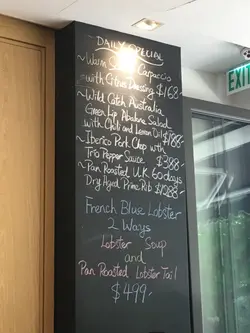 DAILY SPECIAL
~ Warm Carpaccio
with Citrus Dressing $168
~ Wild Catch Australia
Green Lip Abalone Salad
with Chilli and Lemon Oil $188
~ Iberico Pork Chop with
Trio Pepper Sauce $388
~ Pan Roasted U.K 60 days
Dry Aged Prime Rib $1288
French Blue Lobster
2 Ways
Lobster Soup
and
Pan Roasted Lobster Tail
$499-
EXIT